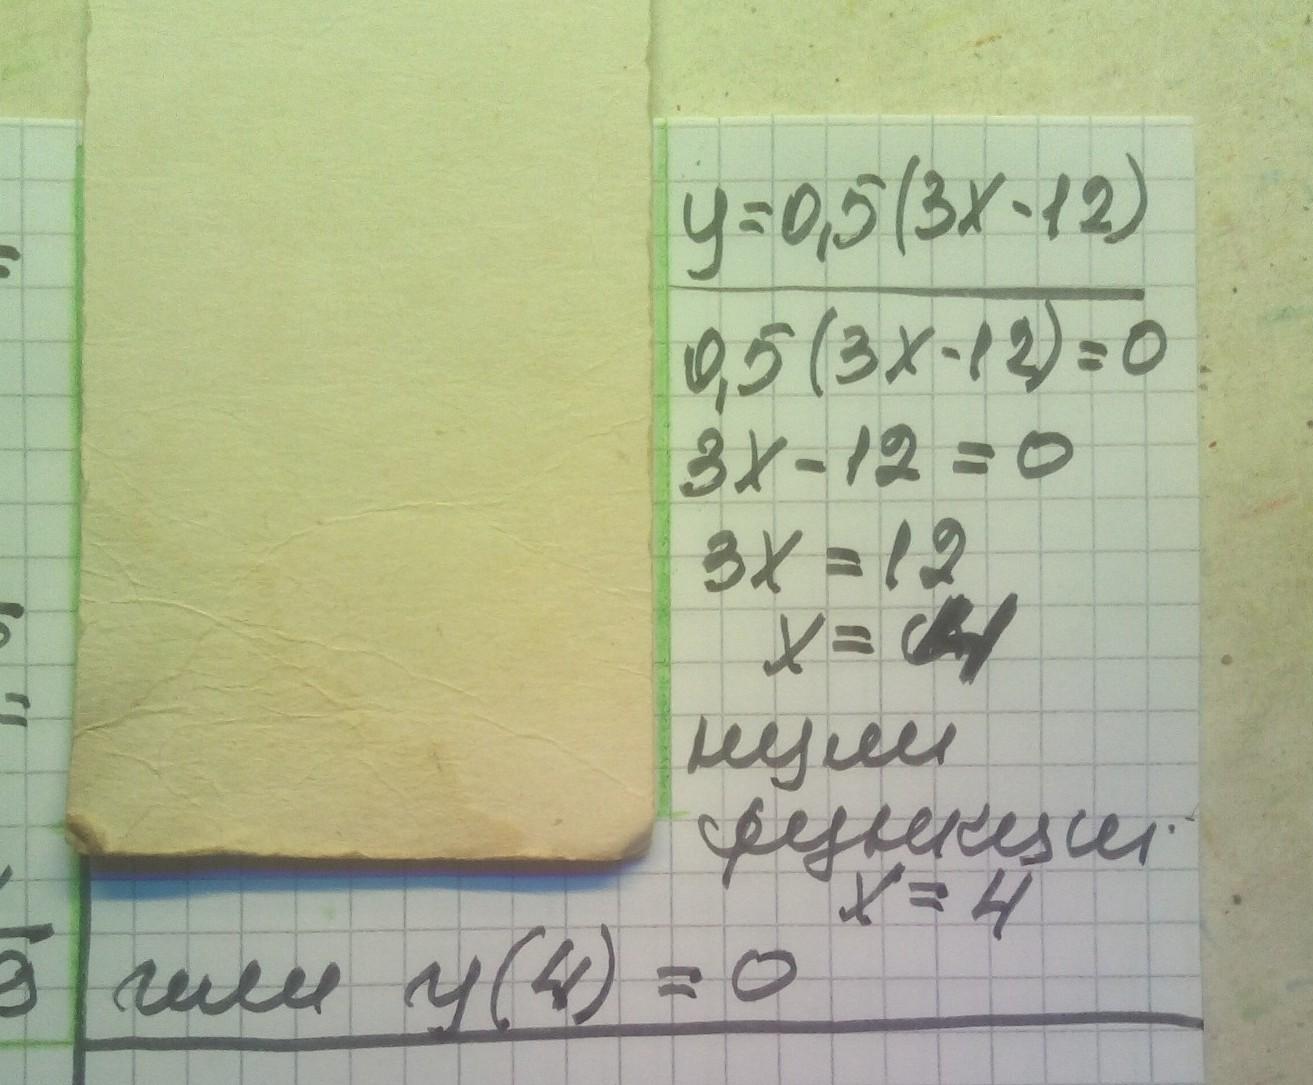 y=0,5(3x-12)
0,5(3x-12)=0
3x-12=0
3x=12
x=4
нули
функции
x=4
или y(4)=0